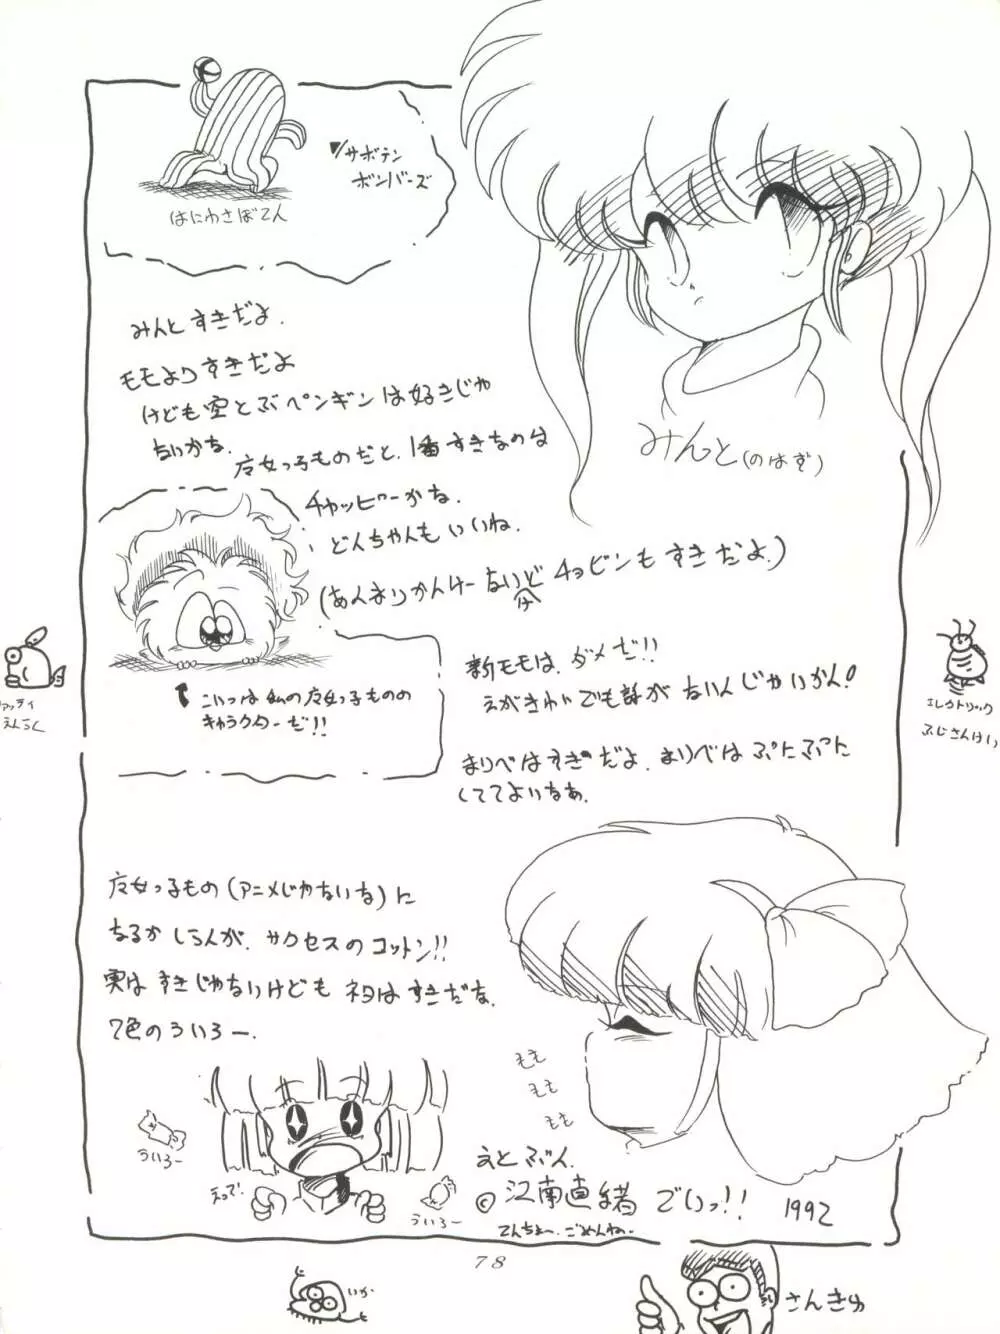 サボテン
ボンバーズ
はにわさぼてん
みんと すきだよ.
モモよりすきだよ
けども空とぶペンギンは好きじゃ
ないかな.
广女っ子ものだと、1番すきなのは
チャッピーかな.
どんちゃんもいいね.
(あんまりかんけーないけどチョビンもすきだよ.)
みんと(のはず)
こいつは私の广女っ子ものの
キャラクターだ!!
新モモは、ダメだ!!
えがきれいでも話がないんじゃいかん!
まりべはすきだよ. まりべは ぷにぷにた
しててよいなあ.
エレクトリック
ふじさんけい
えんらく
广女っ子もの(アニメじゃないな)に
なるかしらんが、サクセスのコットン!!
実はすきじゃないけども ネタはすきだな.
7色のういろー.
もも
もも
もも
ういろー
えって.
ういろー
えとぶん.
©江南直緒 でいっ!! 1992
てんちょー. ごめんねー..
78
いか
さんきゅ